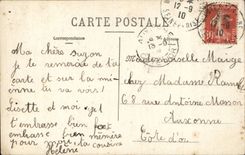 CARTE POSTALE
Correspondance
Ma chère Suzon
je te remercie de ta
carte et sur la mienne
tu va voir
Lisette et moi je
t'embrasse bien fort
embrasse bien mémère
pour moi ta cousine
Hélène
12-9
10
Mademoiselle
chez Madame
68 rue Antoine Masson
Auxonne
Côte d'or